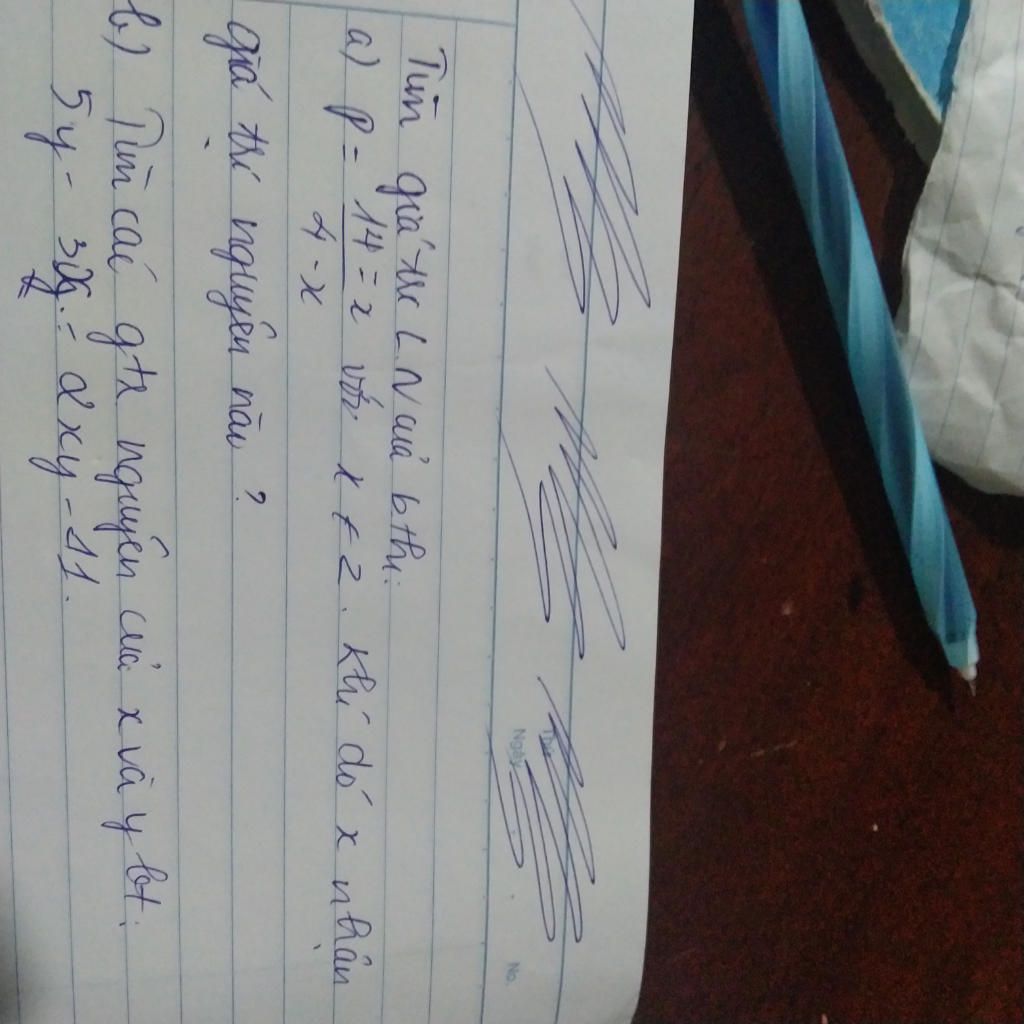 Thứ
Ngày
No.
Tìm giá trị LN của bth:
a) P = 14-x / 4-x với x ∈ Z. Khi đó x nhận
giá trị nguyên nào?
b) Tìm các gtr nguyên của x và y bt:
5y - 3x = 2xy - 11.